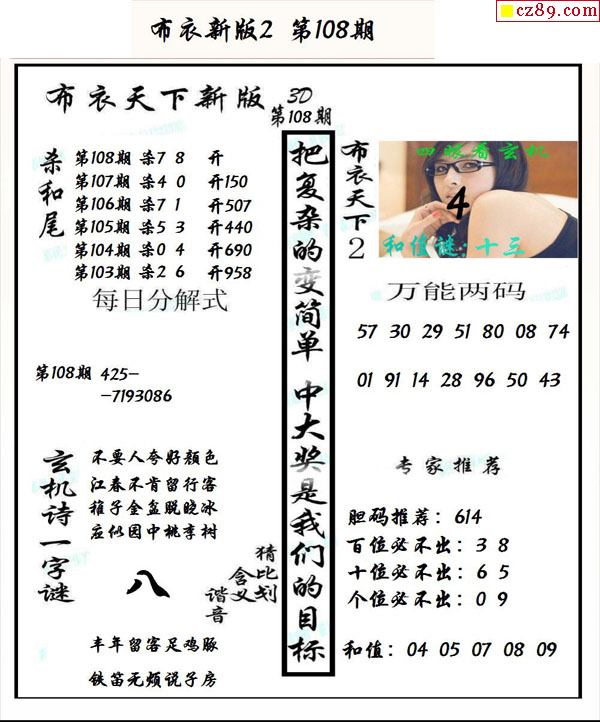 cz89.com
布衣新版2 第108期
布衣天下新版 3D
第108期
杀和尾
第108期 柒7 8 开
第107期 柒4 0 开150
第106期 柒7 1 开507
第105期 柒5 3 开440
第104期 柒0 4 开690
第103期 柒2 6 开958
每日分解式
第108期 425-
-7193086
玄机诗一字谜
不要人夸好颜色
江春不肯留行客
稚子金盆脱晓冰
应似园中桃李树
八
猜比划
含义
谐音
丰年留客足鸡豚
铁笛无烦说子房
把复杂的变简单 中大奖是我们的目标
布衣天下2
四眼看玄机
4
和值谜:十三
万能两码
57 30 29 51 80 08 74
01 91 14 28 96 50 43
专家推荐
胆码推荐: 614
百位必不出: 3 8
十位必不出: 6 5
个位必不出: 0 9
和值: 04 05 07 08 09